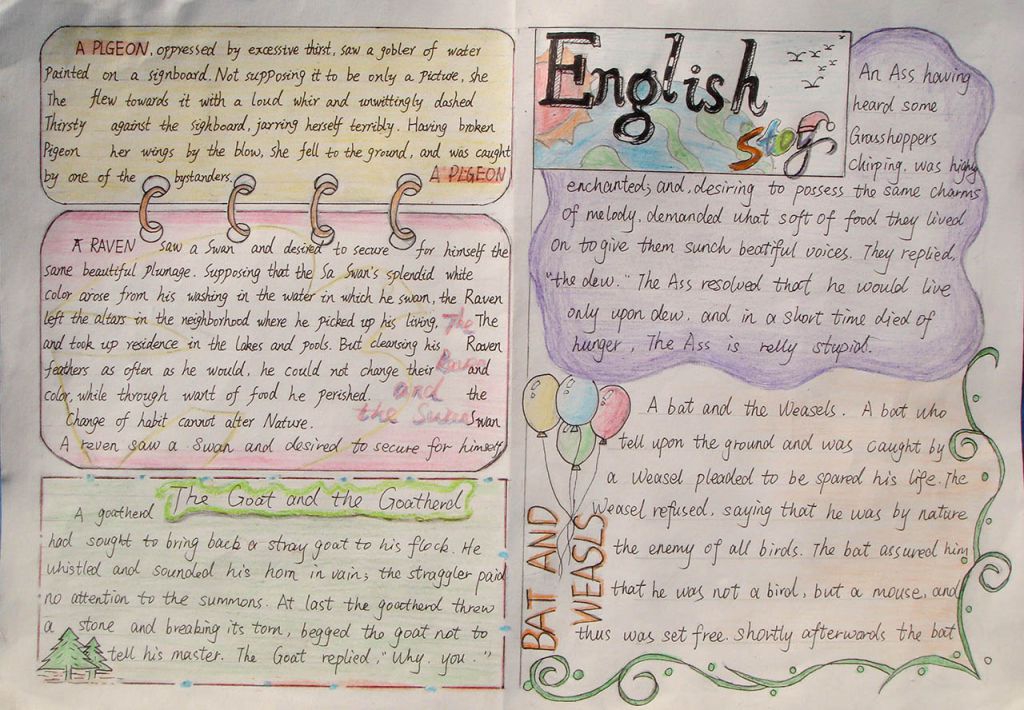 A PIGEON, oppressed by excessive thirst, saw a gobler of water
painted on a signboard. Not supposing it to be only a picture, she
The flew towards it with a loud whir and unwittingly dashed
Thirsty against the sighboard, jarring herself terribly. Having broken
Pigeon her wings by the blow, She fell to the ground, and was caught
by one of the bystanders.
A PLGEON
A RAVEN saw a Swan and desired to secure for himself the
same beautiful plumage. Supposing that the Sa Swan's splendid white
color arose from his washing in the water in which he swam, the Raven
left the altars in the neighborhood where he picked up his living, The The
and took up residence in the lakes and pools. But cleansing his Raven
feathers as often as he would, he could not change their Raven and
color, while through want of food he perished. and the
Change of habit cannot alter Nature. the Swan Swan
A reven saw a Swan and desired to secure for himself
The Goat and the Goatherd
A goatherd
had sought to bring back a stray goat to his flock. He
whistled and sounded his horn in vain; the straggler paid
no attention to the summons. At last the goatherd threw
a stone and breaking its torn, begged the goat not to
tell his master. The Goat replied, "Why. you."
English
stoy
An Ass having
heard some
Grasshoppers
Chirping, was highy
enchanted; and, desiring to possess the same charms
of melody, demanded what soft of food they lived
on to give them sunch beatiful voices. They replied,
"the dew." The Ass resolved that he would live
only upon dew, and in a short time died of
hunger, The Ass is relly stupid.
BAT AND
WEASLS
A bat and the Weasels. A bat who
tell upon the ground and was caught by
a Weasel pleaded to be spared his life. The
Weasel refused, saying that he was by nature
the enemy of all birds. The bat assured him
that he was not a bird, but a mouse, and
thus was set free. Shortly afterwards the bat